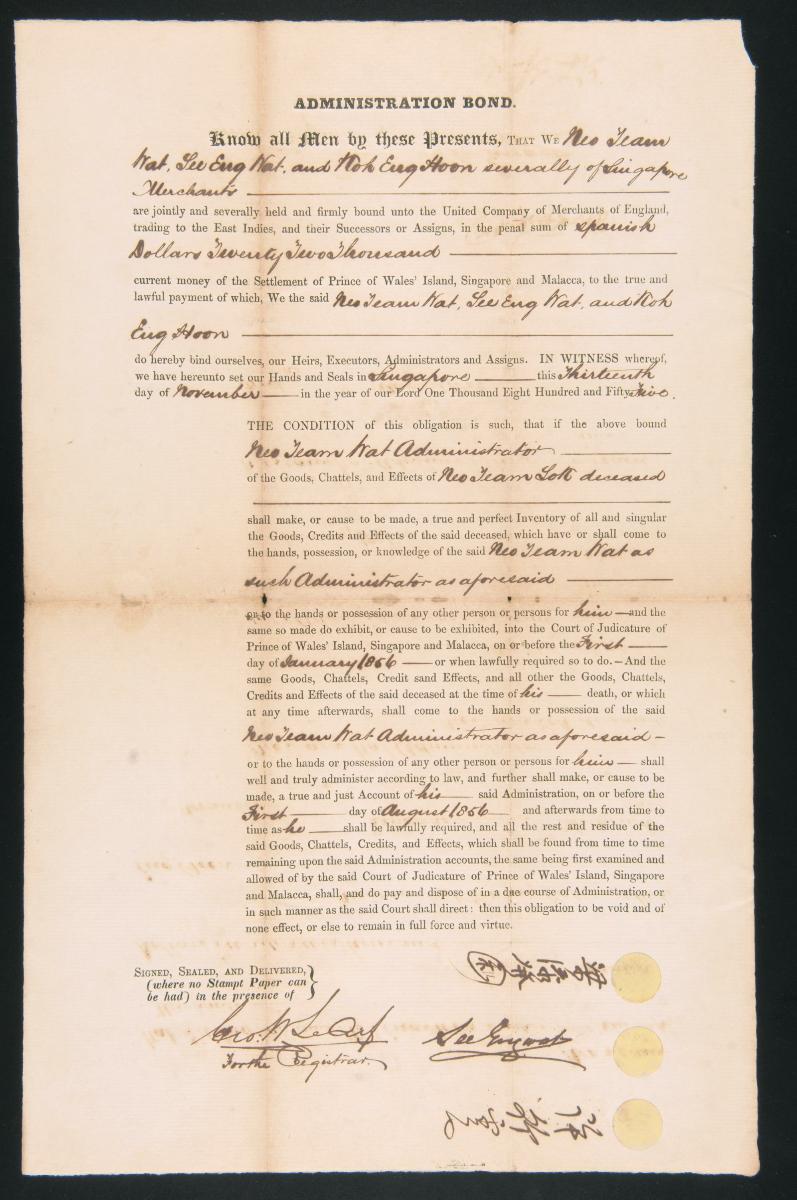 ADMINISTRATION BOND.
Know all Men by these Presents, THAT WE Neo Team
Wat, See Eng Wat, and Koh Eng Hoon severally of Singapore
Merchants
are jointly and severally held and firmly bound unto the United Company of Merchants of England,
trading to the East Indies, and their Successors or Assigns, in the penal sum of spanish
Dollars Twenty Two Thousand
current money of the Settlement of Prince of Wales' Island, Singapore and Malacca, to the true and
lawful payment of which, We the said Neo Team Wat, See Eng Wat, and Koh
Eng Hoon
do hereby bind ourselves, our Heirs, Executors, Administrators and Assigns. IN WITNESS whereof,
we have hereunto set our Hands and Seals in Singapore this Thirteenth
day of November in the year of our Lord One Thousand Eight Hundred and Fifty five.
THE CONDITION of this obligation is such, that if the above bound
Neo Team Wat Administrator
of the Goods, Chattels, and Effects of Neo Team Lok deceased
shall make, or cause to be made, a true and perfect Inventory of all and singular
the Goods, Credits and Effects of the said deceased, which have or shall come to
the hands, possession, or knowledge of the said Neo Team Wat as
such Administrator as aforesaid
or to the hands or possession of any other person or persons for him —and the
same so made do exhibit, or cause to be exhibited, into the Court of Judicature of
Prince of Wales' Island, Singapore and Malacca, on or before the First
day of January 1856 — or when lawfully required so to do.—And the
same Goods, Chattels, Credit sand Effects, and all other the Goods, Chattels,
Credits and Effects of the said deceased at the time of his death, or which
at any time afterwards, shall come to the hands or possession of the said
Neo Team Wat Administrator as aforesaid —
or to the hands or possession of any other person or persons for him — shall
well and truly administer according to law, and further shall make, or cause to be
made, a true and just Account of his said Administration, on or before the
First day of August 1856 and afterwards from time to
time as he shall be lawfully required, and all the rest and residue of the
said Goods, Chattels, Credits, and Effects, which shall be found from time to time
remaining upon the said Administration accounts, the same being first examined and
allowed of by the said Court of Judicature of Prince of Wales' Island, Singapore
and Malacca, shall, and do pay and dispose of in a due course of Administration, or
in such manner as the said Court shall direct: then this obligation to be void and of
none effect, or else to remain in full force and virtue.
SIGNED, SEALED, AND DELIVERED,
(where no Stampt Paper can
be had) in the presence of
See Eng wat
For the Registrar.